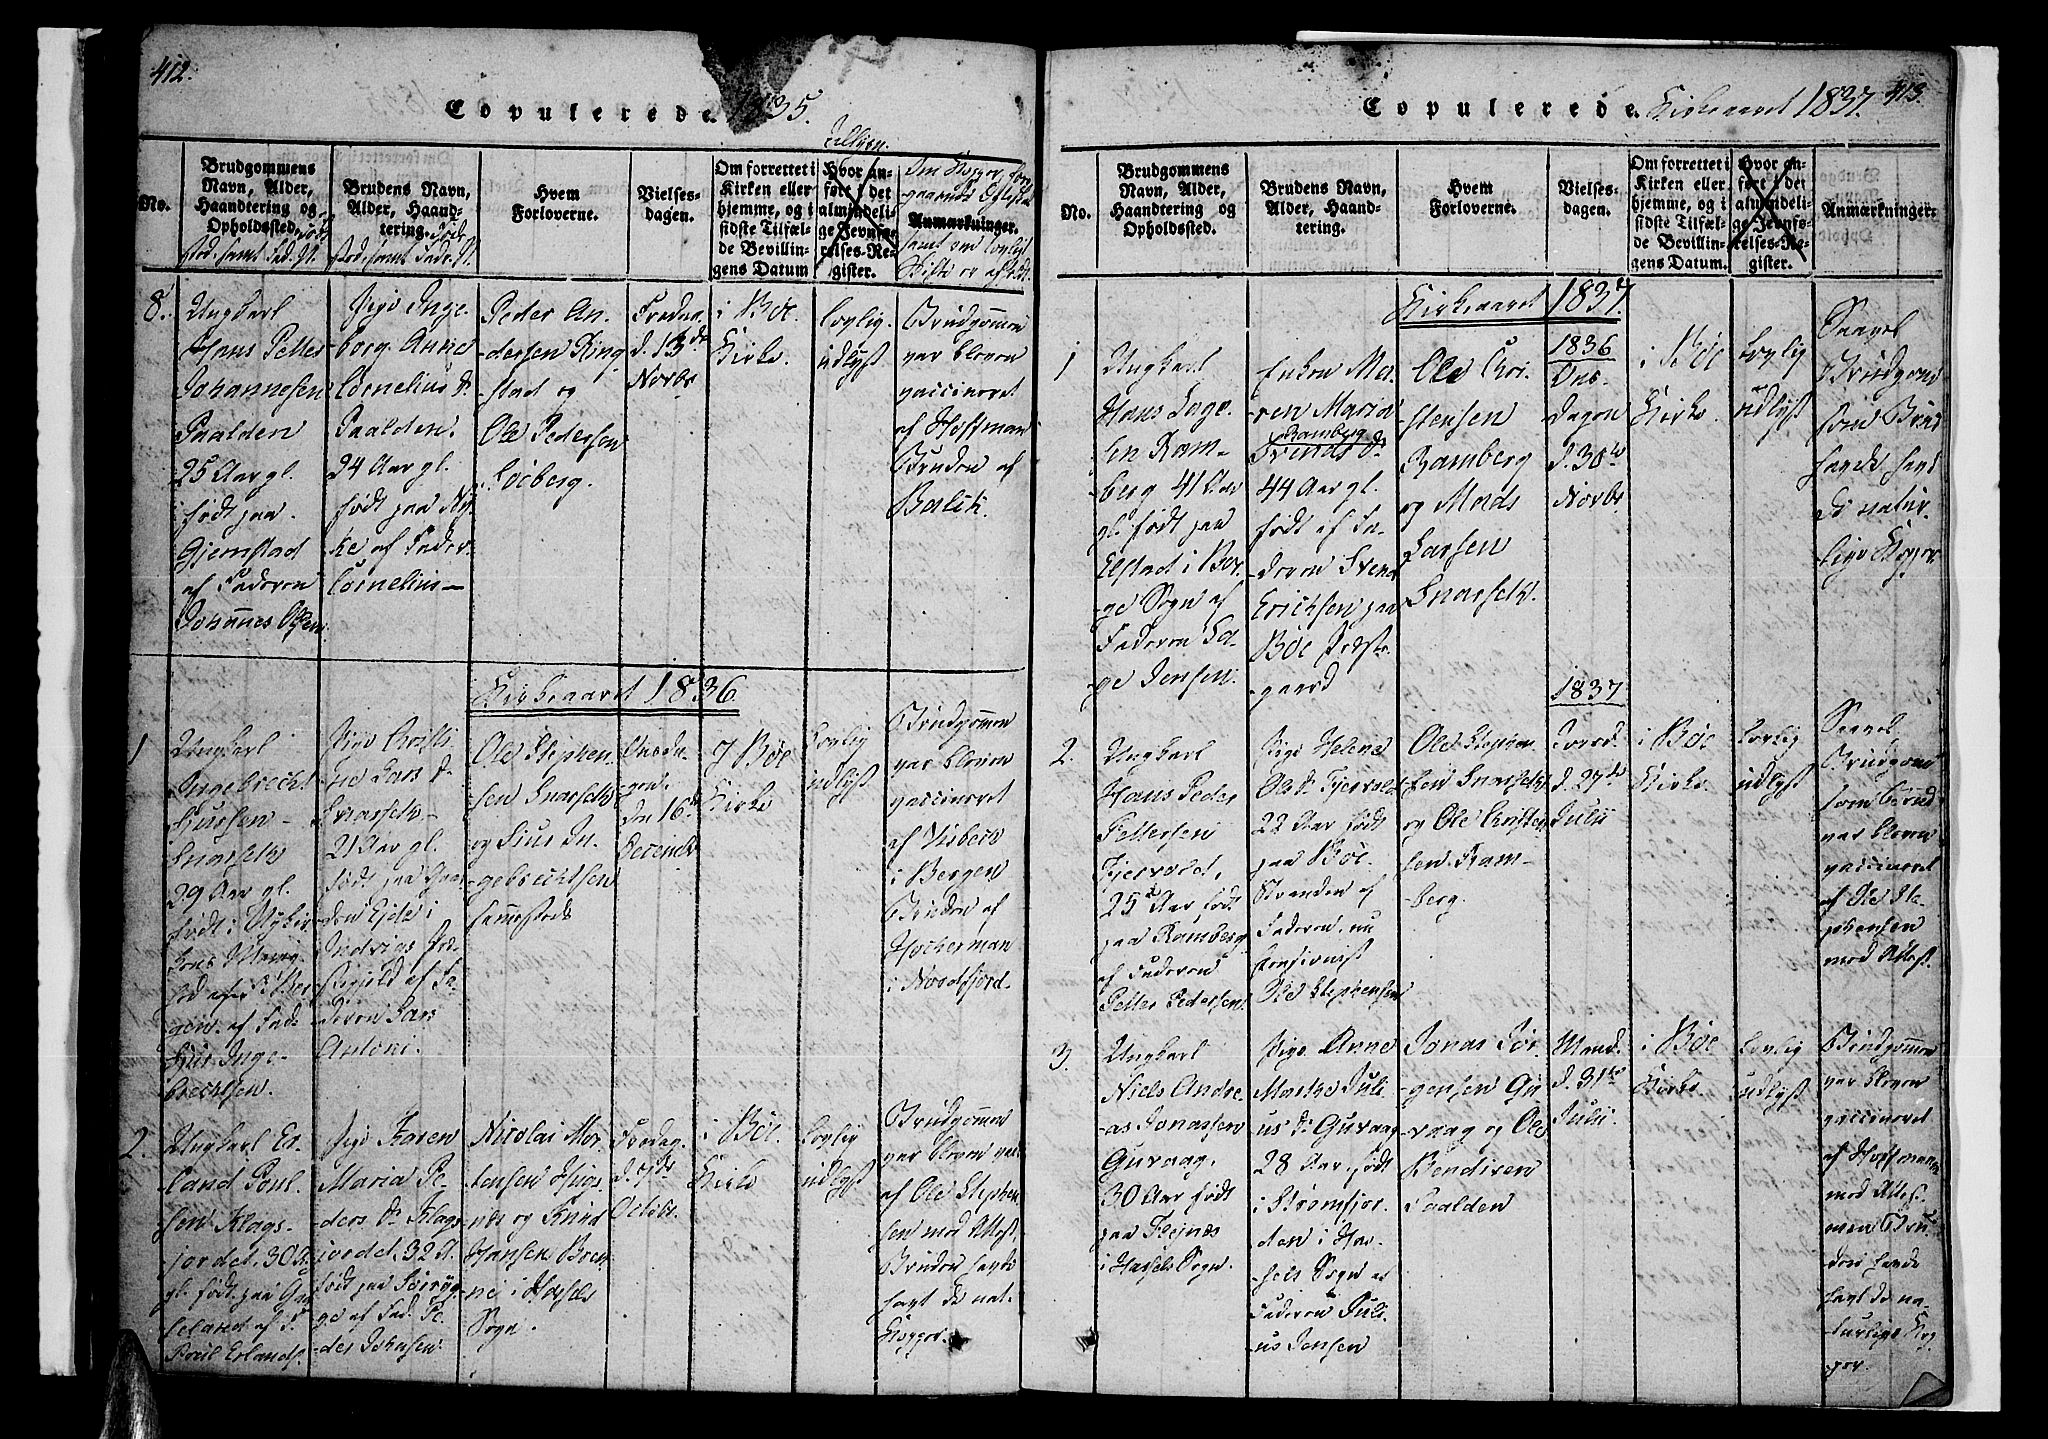 412.
Copulerede 1835.
No.
Brudgommens
Navn, Alder,
Haandtering og
Opholdssted.
Brudens Navn,
Alder, Haand-
tering.
Hvem
Forloverne.
Vielses-
dagen.
Om forrettet i
Kirken eller
hjemme, og i
sidste Tilfæl-
de Bevillin-
gens Datum
Hvor an-
ført i det
almindeli-
ge Jevnfø-
relses-Re-
gister.
Anmærkninger.
8.
Ungkarl
Hans Petter
Johannesen
Paalden
25 Aar gl.
født paa
Gjemstad
af Faderen
Johannes Olsen
Pige Inge-
borg Anne
Cornelius D.
Paalden.
24 Aar gl.
født paa Ny-
ke af Fader
Cornelius
Peder An-
dersen Ring-
stad og
Ole Pedersen
Löeberg.
Fredag
d. 13de
Novbr
i Böe
Kirke.
Lovlig
udlyst
Brudgommen
var bleven
vaccineret
af Hoffman
Bruden af
Balck.
Kirkeaaret 1836
1
Ungkarl
Ingebrecht
Siursen
Snarseth
29 Aar gl.
gen. af Fad.
Siur Inge-
brechtsen.
Pige Christi-
ne Lars D.
Snarseth
21 Aar gl.
født paa
den Ejde i
deren Lars
Antoni.
Ole Stephen-
sen Snarseth
og Siur In-
gebrechtsen
sammesteds
Onsda-
gen
den 16de
Decembr
I Böe
Kirke
Lovlig
udlyst
Brudgommen
var bleven
vaccineret
af Visberg
i Bergen
Bruden af
Hockerman
i Nordfjord.
2.
Ungkarl Er-
land Poul-
sen Klags-
jordet. 30 A.
gl. født paa
Poul Erlands.
Pige Karen
Maria Pe-
ders D. Klags-
jordet. 32 A.
født paa
ge af Fad. Pe-
der Johnsen.
Nicolai Mor-
tensen
og Knud
Hansen Bren-
ne i Hassels
Sogn.
Fredag
d. 7de
Octobr.
i Böe
Kirke
Lovlig
udlyst
Brudgommen
var bleven vac.
af Ole Stephen-
sen med Attest.
Bruden havde
havt de nat.
Kopper.
413.
Copulerede. Kirkeaaret 1837.
No.
Brudgommens
Navn, Alder,
Haandtering og
Opholdssted.
Brudens Navn,
Alder, Haand-
tering.
Hvem
Forloverne.
Vielses-
dagen.
Om forrettet i
Kirken eller
hjemme, og i
sidste Tilfæl-
de Bevillin-
gens Datum.
Hvor an-
ført i det
almindeli-
ge Jevnfø-
relses-Re-
gister.
Anmærkninger.
Kirkeaaret 1837.
1
Ungkarl
Hans Lage-
sen Ram-
berg 41 Aar
gl. født paa
Elstad i Bor-
ge Sogn af
Faderen La-
ge Jensen.
Enken Ma-
ren Maria
Ramberg
Svends D.
44 Aar gl.
født af Fa-
deren Svend
Erichsen paa
Böe Præste-
gaard
Ole Chri-
stensen
Ramberg
og Mads
Larsen
Snarseth.
1836
Ons-
dagen
d. 30te
Novbr
i Böe
Kirke
Lovlig
udlyst
Saavel
Brudgom
som Brud
havde havt
de natur-
lige Kopper
2.
Ungkarl
Hans Peder
Pettersen
Fjervold,
25 Aar født
paa Ramberg
af Faderen
Petter Pedersen
Pige Helene
Ols D. Fjervold
22 Aar født
paa Böe-
Stranden af
Faderen, nu
Ole Stephensen
Ole Stephen-
sen Snarseth
og Ole Christen-
sen Ram-
berg.
1837
Torsd.
d. 27de
Julii
i Böe
Kirke
Lovlig
udlyst
Saavel
Brudgom
som Brud
var bleven
vaccineret
af Ole Ste-
phensen
med Attest.
3.
Ungkarl
Niels Andre-
as Jonassen
Guvaag,
30 Aar født
paa Fleines
i Hassels Sogn.
Pige Anne
Marthe Juli-
us D. Guvaag
28 Aar, født
i Strømfjor-
den i Has-
sels Sogn af
Faderen Juli-
us Jensen
Jonas Jör-
gensen Gu-
vaag og Ole
Bendixen
Paalden
Mand.
d. 31te
Julii
i Böe
Kirke
Lovlig
udlyst
Brudgommen
var bleven
vaccineret
af Hoffmann
med Attest.
men Bru-
den havde
havt de na-
turlige Kop-
per.